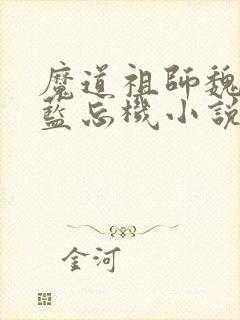 魔道祖師魏
藍忘機小說
金河